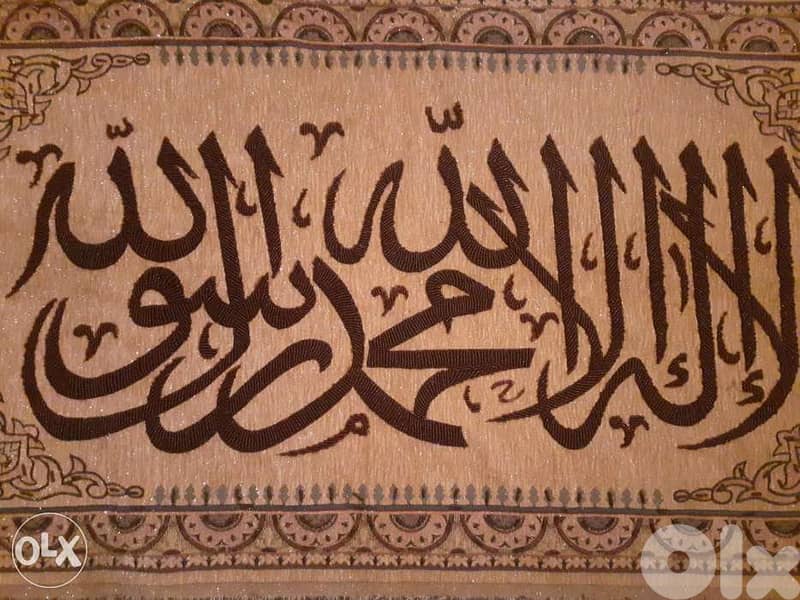 لا إله إلا الله محمد رسول الله
OLX
OLX